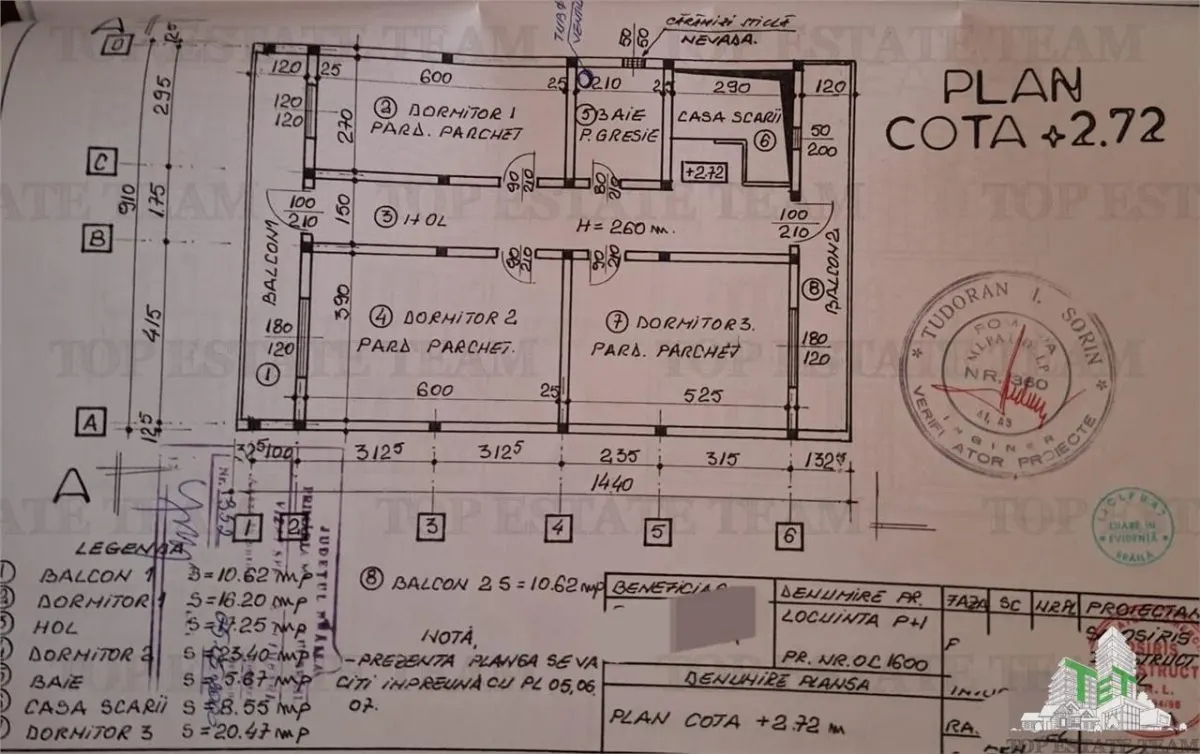 PLAN
COTA +2.72
TUBØ
VENTI
CĂRĂMIZI STICLĂ
NEVADA.
50 50
D
C
B
A
125
295
175
910
415
125
120
25
600
25
210
25
290
120
120
120
270
② DORMITOR 1
PARD. PARCHET
⑤ BAIE
P. GRESIE
CASA SCARII
⑥
50
200
+2.72
90
210
80
210
100
210
150
③ HOL
H=260 m.
100
210
BALCON 1
BALCON 2
⑧
90
210
90
210
390
④ DORMITOR 2
PARD PARCHET.
⑦ DORMITOR 3.
PARD. PARCHET
180
120
180
120
①
600
25
525
325
100
3125
3125
235
315
1325
1440
A
1 2 3 4 5 6
TUDORAN I. SORIN
VERIFICATOR PROIECTE
INGINER
NR. 360
I.J.C.L.P.U.A.T
LUARE IN
EVIDENȚĂ
BRĂILA
Nr. 1359
JUDEȚUL BRĂILA
LEGENDA
① BALCON 1 S=10.62 mp
② DORMITOR 1 S=16.20 mp
③ HOL S=17.25 mp
④ DORMITOR 2 S=23.40 mp
⑤ BAIE S=5.67 mp
⑥ CASA SCARII S=8.55 mp
⑦ DORMITOR 3 S=20.47 mp
⑧ BALCON 2 S=10.62 mp
NOTĂ,
-PREZENTA PLANȘA SE VA
CITI ÎMPREUNĂ CU PL 05,06
07.
BENEFICIAR
DENUMIRE PR.
FAZA
SC
NR PL
PROIECTAN
LOCUINTA P+1
F
PR. NR. 01600
DENUMIRE PLANSA
PLAN COTA +2.72 m
RA.
TET
TOP ESTATE TEAM